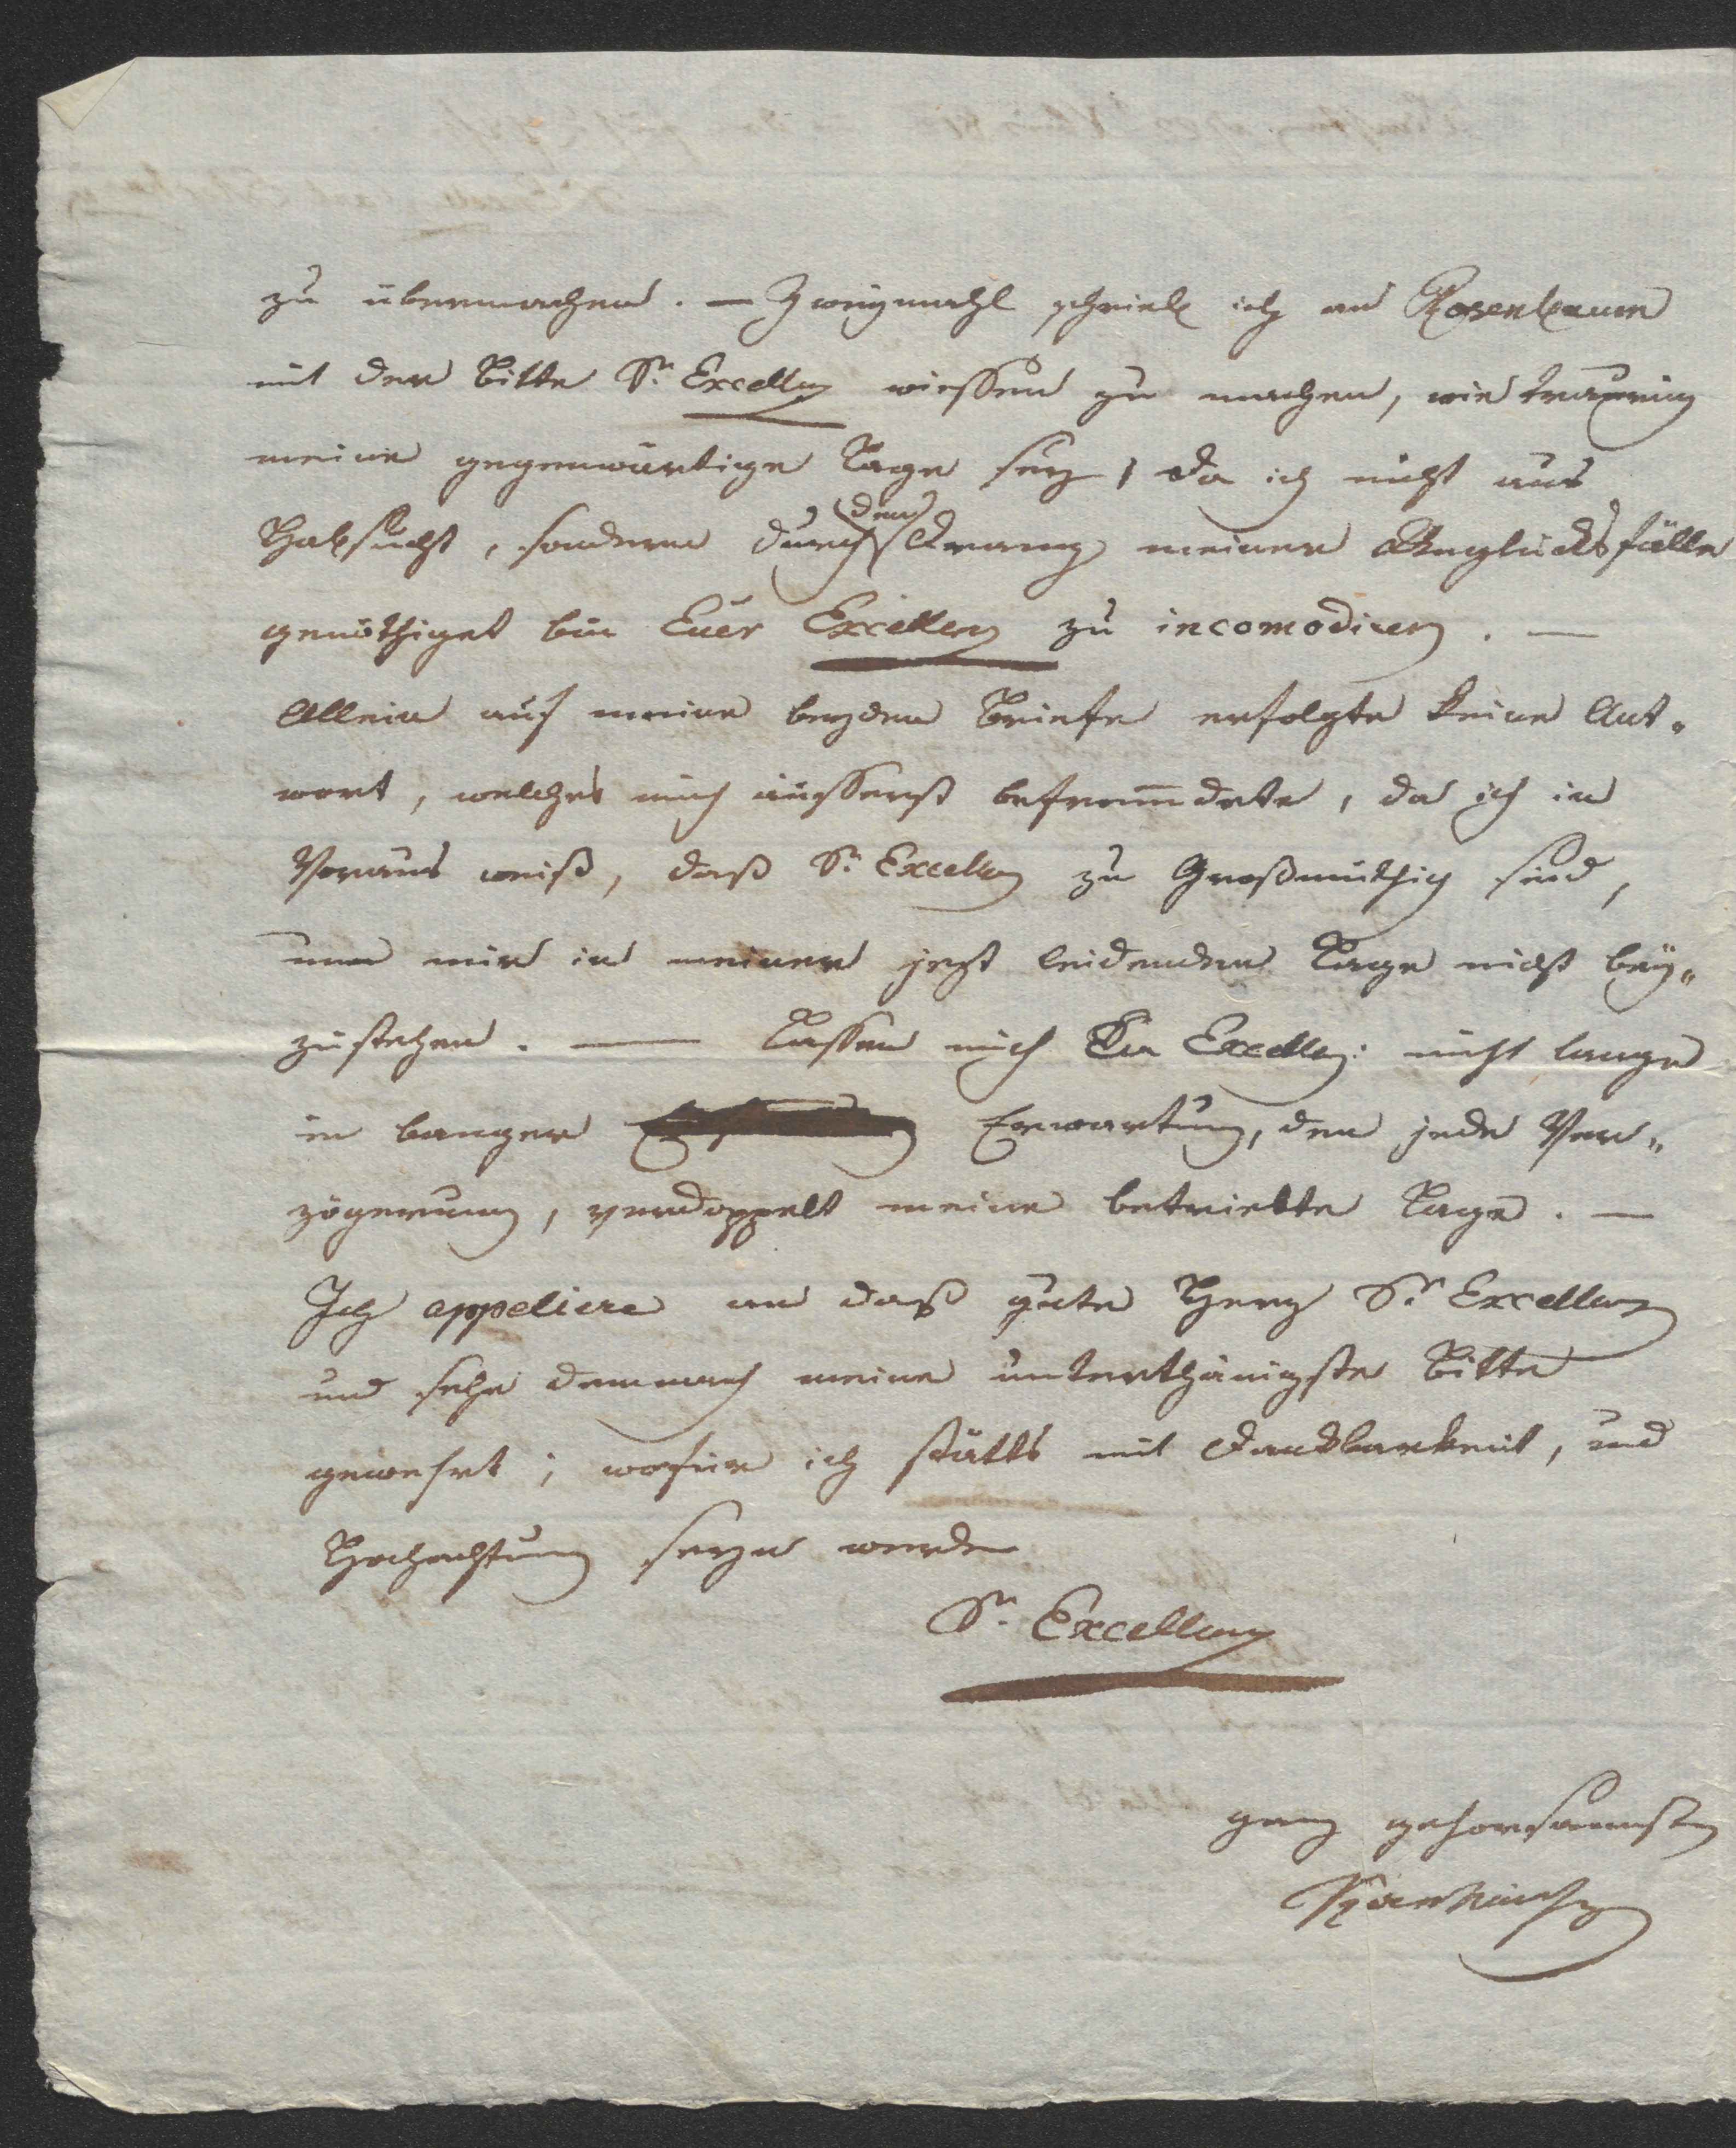 zu übermachen. — Zweymahl schrieb ich an Rosenbaum
mit der Bitte Sr. Excellenz wiessen zu machen, wie traurig
meine gegenwärtige Lage sey, da ich nicht aus
Habsucht, sondern durch den Drang meiner Unglücksfälle
genöthiget bin Euer Excellenz zu incomodiren. —
Allein auf meine beyden Briefe erfolgte keine Ant„
wort, welches mich äusserst befremdete, da ich in
Voraus weiß, daß Sr. Excellenz zu Großmüthig sind,
um mir in meiner jezt leidenden Lage nicht bey„
zustehen. — Lassen mich Eu Excellenz: nicht lange
in banger Erwartung, den jede Ver„
zögerung, verdoppelt meine betriebte Lage. —
Ich appeliere an daß gute Herz Sr. Excellenz
und sehe demnach meine unterthänigste Bitte
gewehrt; wofür ich stätts mit Dankbarkeit, und
Hochachtung seyn werde
Sr. Excellenz
ganz gehorsamster